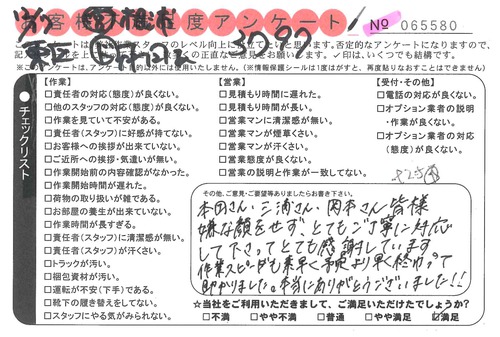 お客様満足度アンケート
No 065580
3097
東区
【作業】
□責任者の対応(態度)が良くない。
□他のスタッフの対応(態度)が良くない。
□作業を見ていて不安がある。
□責任者(スタッフ)に好感が持てない。
□お客様への挨拶が出来ていない。
□ご近所への挨拶・気遣いが無い。
□作業開始前の内容確認がなかった。
□作業開始時間が遅れた。
□荷物の取り扱いが雑である。
□お部屋の養生が出来ていない。
□作業時間が長すぎる。
□責任者(スタッフ)に清潔感が無い。
□責任者(スタッフ)が汗くさい。
□トラックが汚い。
□梱包資材が汚い。
□運転が不安(下手)である。
□靴下の履き替えをしてない。
□スタッフにやる気がみられない。
【営業】
□見積もり時間に遅れた。
□見積もり時間が長い。
□営業マンに清潔感が無い。
□営業マンが煙草くさい。
□営業マンが汗くさい。
□営業態度が良くない。
□営業の説明と作業が一致してない。
【受付・その他】
□電話の対応が良くない。
□オプション業者の説明
・作業が良くない。
□オプション業者の対応
(態度)が良くない。
チェックリスト
その他、ご意見・ご要望等ありましたらお書き下さい。
本田さん・三浦さん・岡本さん皆様
嫌な顔をせず、とてもご丁寧に対応
して下さってとても感謝しています
作業スピードも素早く予定より早く終わって
助かりました。本当にありがとうございました!!
☆当社をご利用いただきまして、ご満足いただけたでしょうか?
□不満 □やや不満 □普通 □やや満足 ☑満足